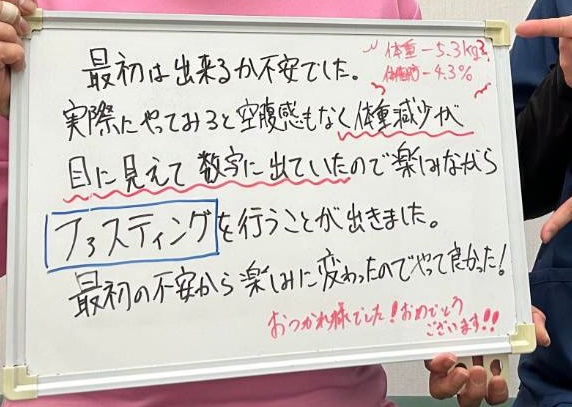 体重-5.3kg!
体脂肪-4.3%
最初は出来るか不安でした。
実際にやってみると空腹感もなく体重減少が
目に見えて数字に出ていたので楽しみながら
ファスティングを行うことが出きました。
最初の不安から楽しみに変わったのでやって良かった!
おつかれ様でした!おめでとう
ございます!!